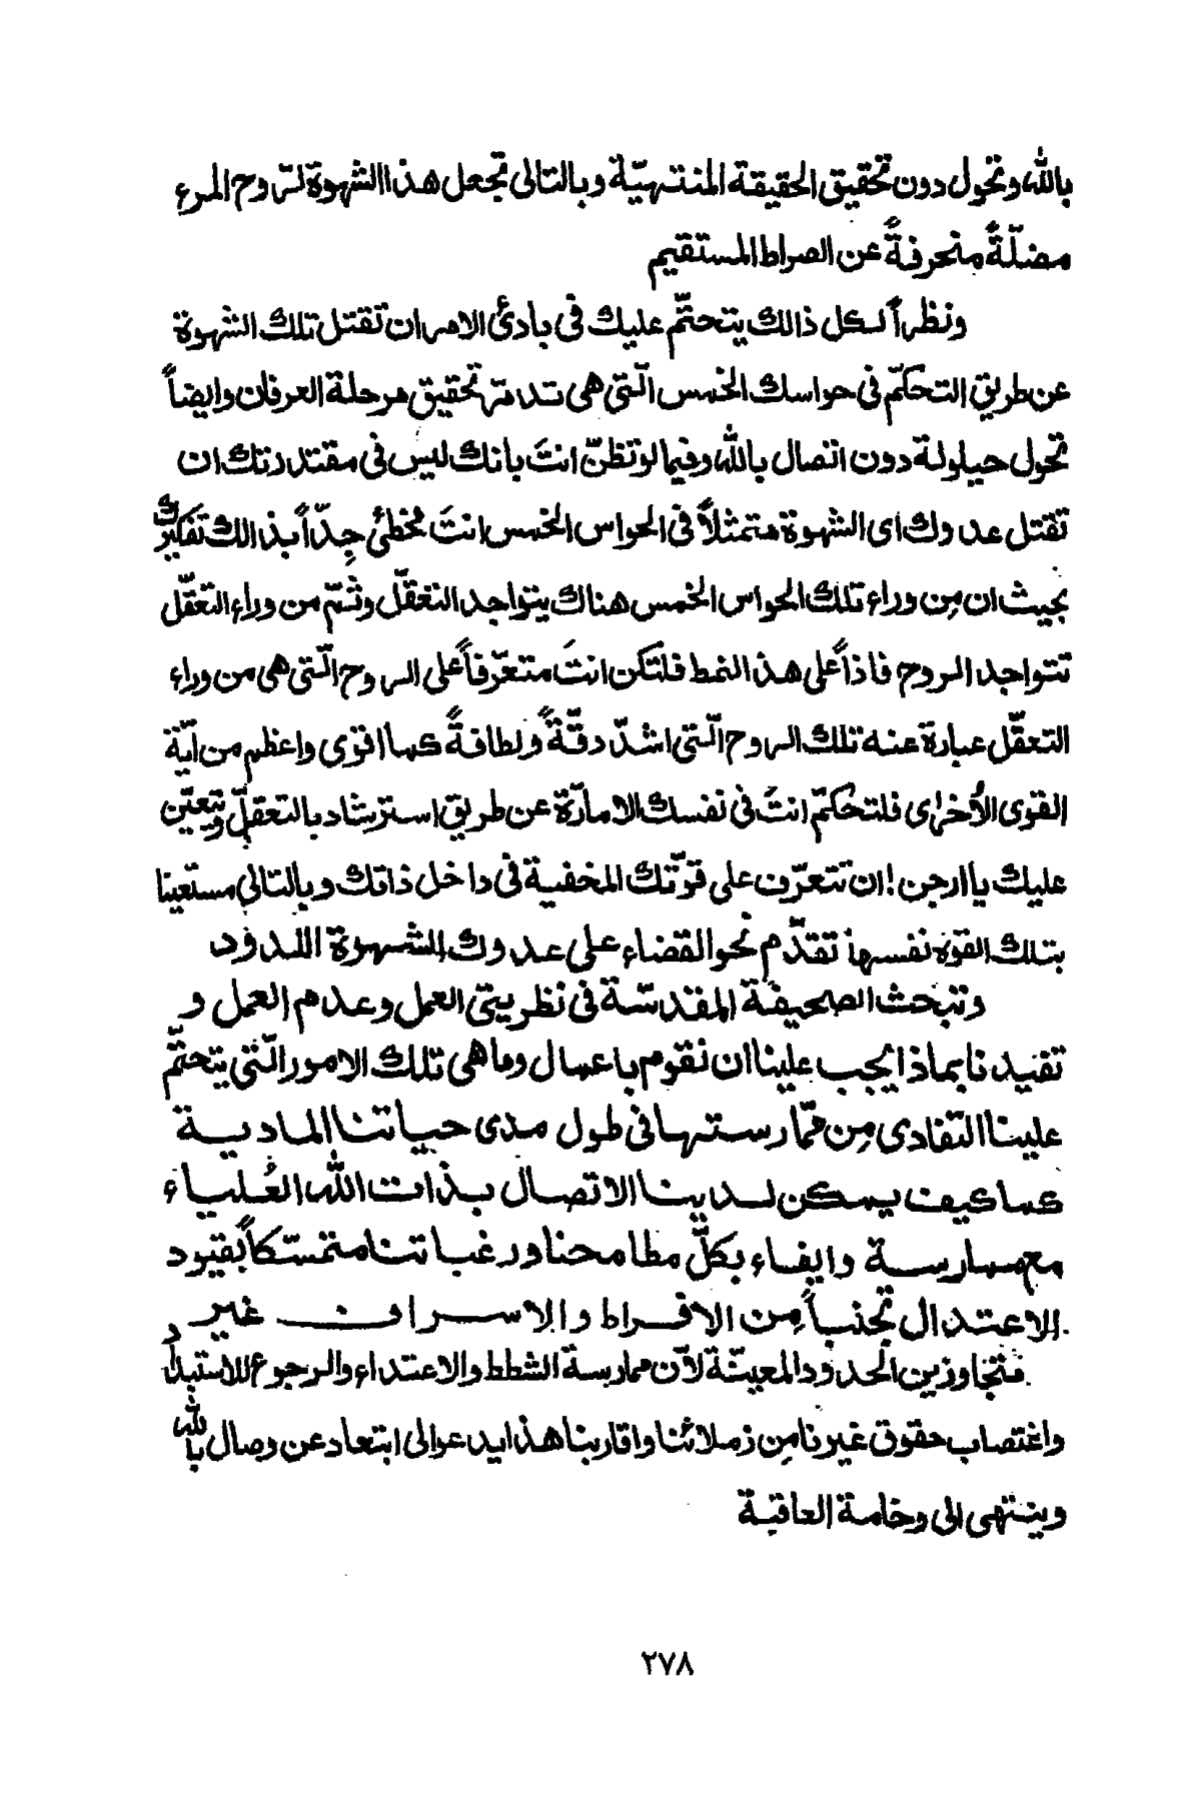 بالله وتحول دون تحقيق الحقيقة المنتهيّة وبالتالى تجعل هذا الشهوة لرّوح المرء
مضلّةً منحرفةً عن الصراط المستقيم
ونظراً لكل ذالك يتحتّم عليك فى بادئ الامر ان تقتل تلك الشهوة
عن طريق التحكّم فى حواسك الخمس الّتى هى تدمّر تحقيق مرحلة العرفان وايضاً
تحول حيلولة دون اتصال بالله وفيما لو تظنّ انتَ بانك ليس فى مقتدرتك ان
تقتل عدوك اى الشهوة متمثلاً فى الحواس الخمس انتَ مخطئ جِدّاً بذالك تفكيرك
بحيث ان مِن وراء تلك الحواس الخمس هناك يتواجد التعقّل وثمّ من وراء التعقّل
تتواجد الروح فاذاً على هذ النمط فلتكن انتَ متعرّفاً على الروح الّتى هى من وراء
التعقّل عبارة عنه تلك الروح الّتى اشدّ دقّةً ولطافةً كما اقوى واعظم من ايّة
القوى الأخرٰى فلتحكمّ انتَ فى نفسك الامارّة عن طريق استرشاد بالتعقلّ ويتعيّن
عليك يا ارجن! ان تتعرّف على قوّتك المخفية فى داخل ذاتك وبالتالي مستعينا
بتلك القوة نفسها تقدّم نحو القضاء على عدوك الشهوة اللدود
وتبحث الصحيفة المقدسّة فى نظريتى العمل وعدم العمل و
تفيدنا بماذا يجب علينا ان نقوم باعمال وما هى تلك الامور الّتى يتحتّم
علينا التفادى مِن ممّارستها فى طول مدى حياتنا المادية
كما كيف يمكن لدينا الاتصال بذات الله العُلياء
مع ممارسة وايفاء بكلّ مطامحنا ورغباتنا متمسّكاً بقيود
الاعتدال تجنباً مِن الافراط والاسراف غير
متجاوزين الحدود المعينّة لانّ ممارسة الشطط والاعتداء والرجوع للاستبداد
واغتصاب حقوق غيرنا مِن زملائنا واقاربنا هذا يدعو الى ابتعاد عن وصال بالله
وينتهى الى وخامة العاقبة
٢٧٨